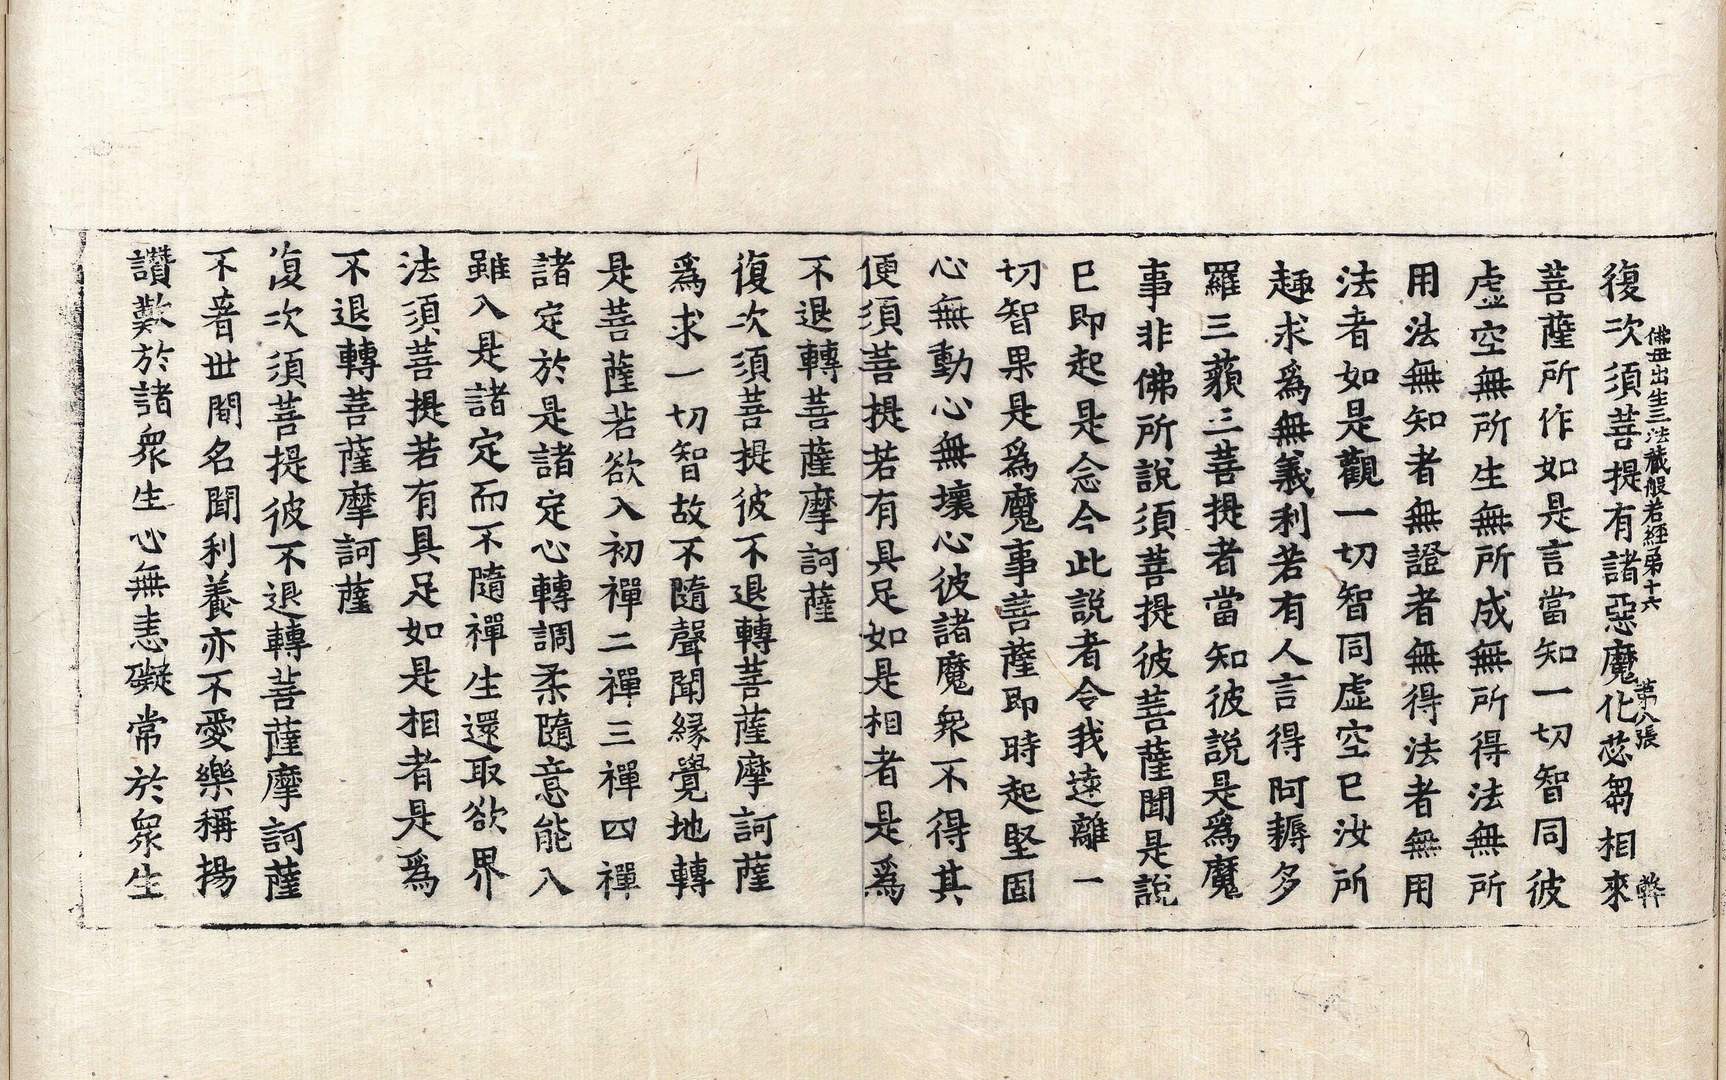 佛母出生三法藏般若經第十六 第八張 弊
復次須菩提有諸惡魔化苾芻相來
菩薩所作如是言當知一切智同彼
虛空無所生無所成無所得法無所
用法無知者無證者無得法者無用
法者如是觀一切智同虛空已汝所
趣求爲無義利若有人言得阿耨多
羅三藐三菩提者當知彼說是爲魔
事非佛所說須菩提彼菩薩聞是說
已即起是念今此說者令我遠離一
切智果是爲魔事菩薩即時起堅固
心無動心無壞心彼諸魔衆不得其
便須菩提若有具足如是相者是爲
不退轉菩薩摩訶薩
復次須菩提彼不退轉菩薩摩訶薩
爲求一切智故不隨聲聞緣覺地轉
是菩薩若欲入初禪二禪三禪四禪
諸定於是諸定心轉調柔隨意能入
雖入是諸定而不隨禪生還取欲界
法須菩提若有具足如是相者是爲
不退轉菩薩摩訶薩
復次須菩提彼不退轉菩薩摩訶薩
不著世間名聞利養亦不愛樂稱揚
讚歎於諸衆生心無恚礙常於衆生